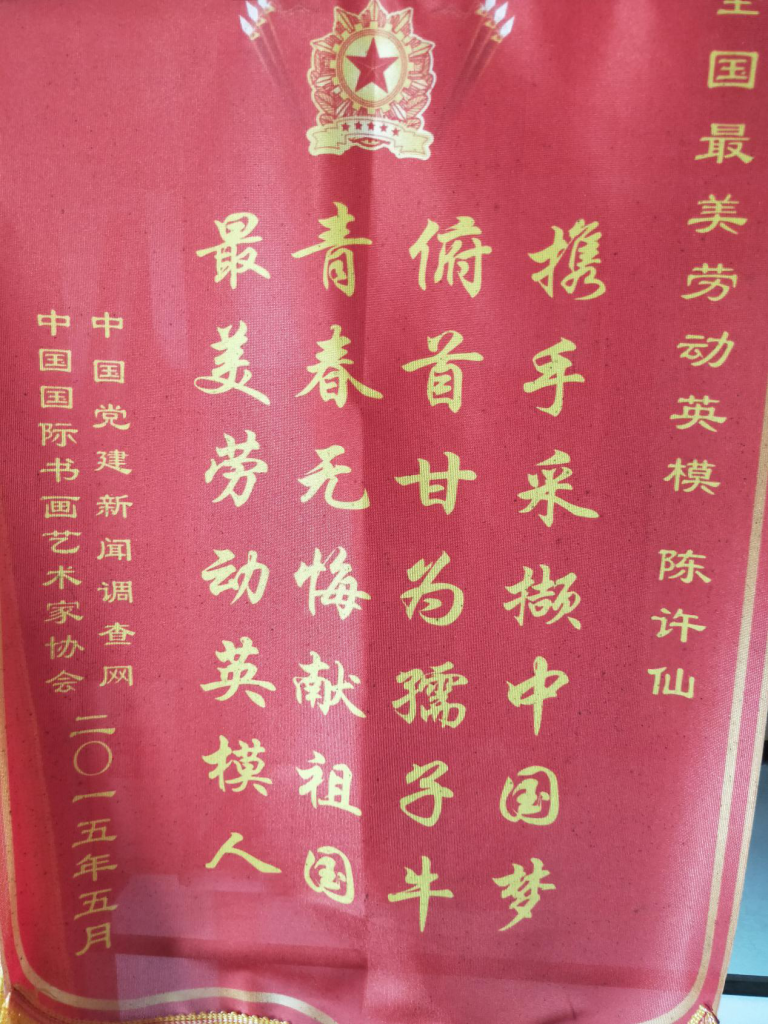 全国最美劳动英模 陈许仙
携手采撷中国梦
俯首甘为孺子牛
青春无悔献祖国
最美劳动英模人
中国党建新闻调查网
中国国际书画艺术家协会
二〇一五年五月